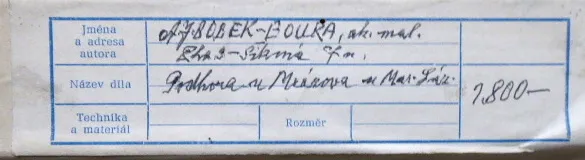 Jména
a adresa
autora
AJBOBEK-BOUŘA, ak. mal.
Praž-Šikmá 7 n.
Název díla
Podhora u Mrázova u Mar. Láz.
1.800-
Technika
a materiál
Rozměr